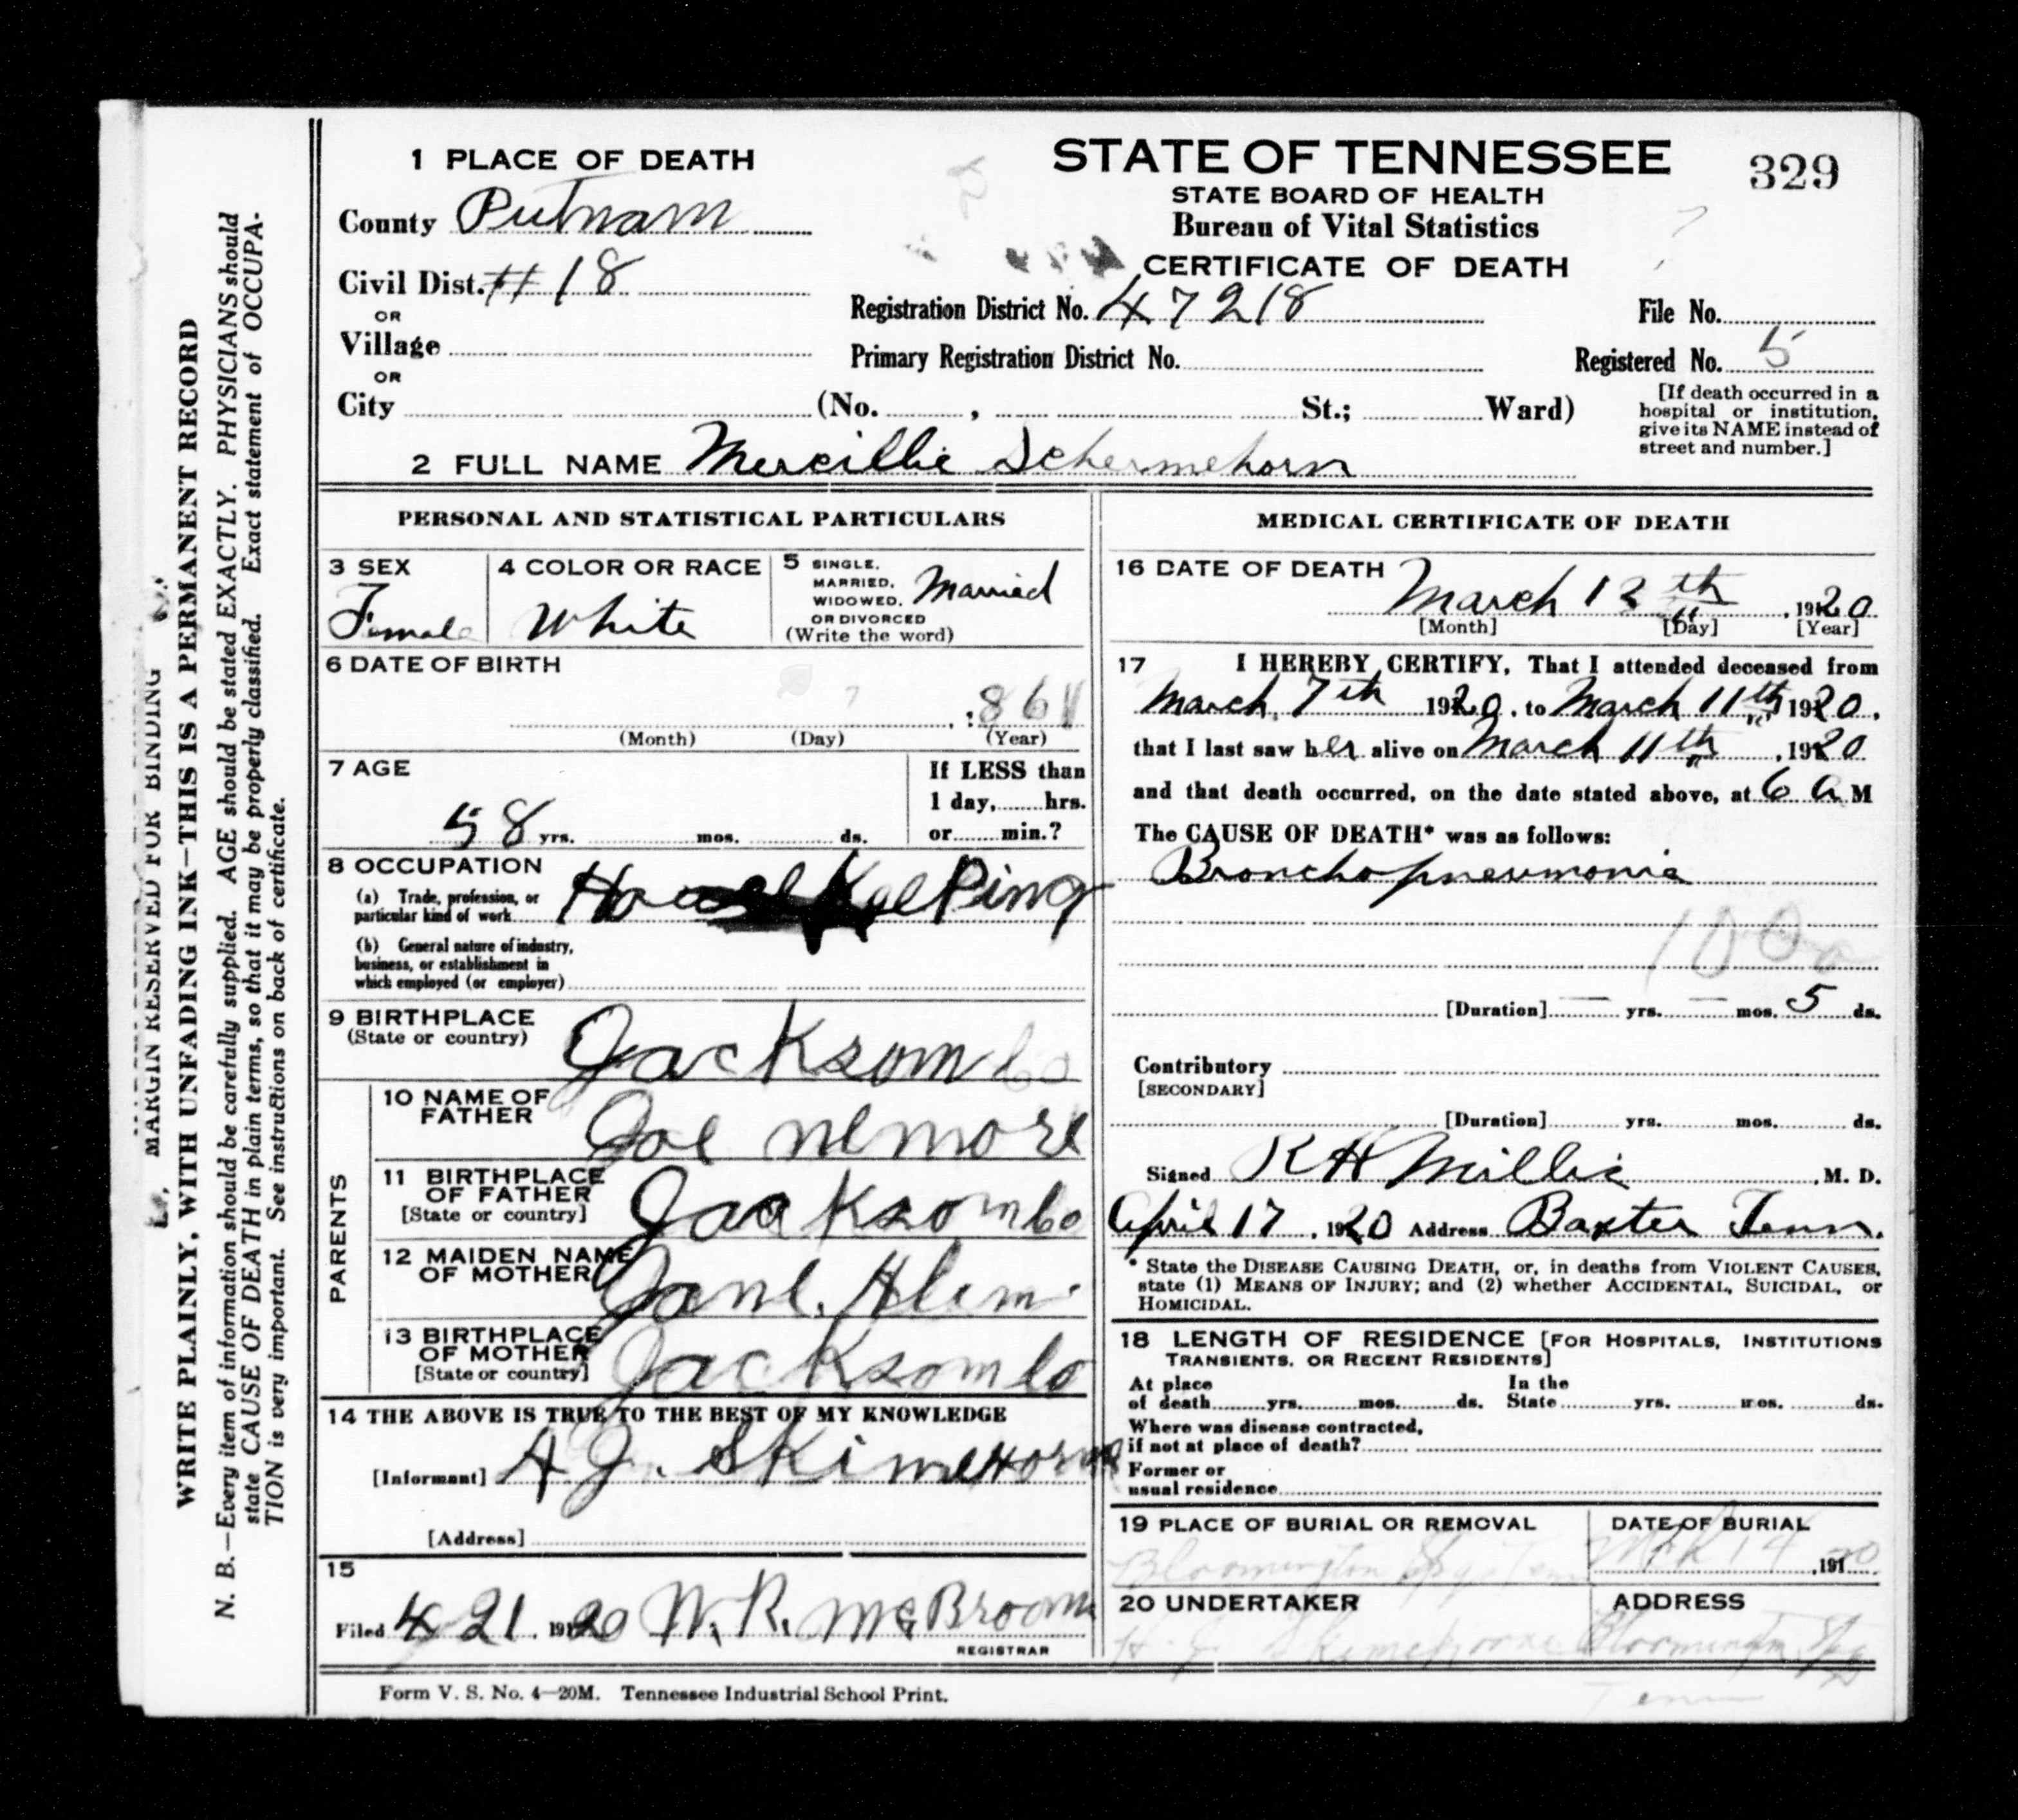 1 PLACE OF DEATH
County Putnam
Civil Dist. # 18
OR
Village
OR
City (No. , St.; Ward)
STATE OF TENNESSEE
STATE BOARD OF HEALTH
Bureau of Vital Statistics
CERTIFICATE OF DEATH
329
Registration District No. 47218
File No.
Primary Registration District No.
Registered No. 5
[If death occurred in a
hospital or institution,
give its NAME instead of
street and number.]
2 FULL NAME Schermehorn
PERSONAL AND STATISTICAL PARTICULARS
3 SEX
Female
4 COLOR OR RACE
White
5 SINGLE,
MARRIED,
WIDOWED,
OR DIVORCED
(Write the word)
Married
6 DATE OF BIRTH
, 1861
(Month) (Day) (Year)
7 AGE
58 yrs. mos. ds.
If LESS than
1 day, hrs.
or min.?
8 OCCUPATION
(a) Trade, profession, or
particular kind of work HouseKeePing
(b) General nature of industry,
business, or establishment in
which employed (or employer)
9 BIRTHPLACE
(State or country)
Jackson Co
PARENTS
10 NAME OF
FATHER
Joe
11 BIRTHPLACE
OF FATHER
[State or country]
Jackson Co
12 MAIDEN NAME
OF MOTHER
13 BIRTHPLACE
OF MOTHER
[State or country]
Jackson Co
14 THE ABOVE IS TRUE TO THE BEST OF MY KNOWLEDGE
[Informant] A J. SKimeHorn
[Address]
15
Filed 4 21, 1920 W. R. McBroom
REGISTRAR
MEDICAL CERTIFICATE OF DEATH
16 DATE OF DEATH
March 12th, 1920
[Month] [Day] [Year]
17 I HEREBY CERTIFY, That I attended deceased from
March 7th 1920, to March 11th 1920,
that I last saw her alive on March 11th, 1920
and that death occurred, on the date stated above, at 6 a M
The CAUSE OF DEATH* was as follows:
Bronchopneumonia
[Duration] — yrs. — mos. 5 ds.
Contributory
[SECONDARY]
[Duration] yrs. mos. ds.
Signed R H Millis, M. D.
April 17, 1920 Address Baxter Tenn.
* State the DISEASE CAUSING DEATH, or, in deaths from VIOLENT CAUSES,
state (1) MEANS OF INJURY; and (2) whether ACCIDENTAL, SUICIDAL, or
HOMICIDAL.
18 LENGTH OF RESIDENCE [FOR HOSPITALS, INSTITUTIONS
TRANSIENTS, OR RECENT RESIDENTS]
At place
of death yrs. mos. ds.
In the
State yrs. mos. ds.
Where was disease contracted,
if not at place of death?
Former or
usual residence
19 PLACE OF BURIAL OR REMOVAL
Bloomington Spgs Tenn
DATE OF BURIAL
Mch 14, 1920
20 UNDERTAKER
ADDRESS
Bloomington Spgs
Tenn
Form V. S. No. 4—20M. Tennessee Industrial School Print.
MARGIN RESERVED FOR BINDING
WRITE PLAINLY, WITH UNFADING INK—THIS IS A PERMANENT RECORD
N. B.—Every item of information should be carefully supplied. AGE should be stated EXACTLY. PHYSICIANS should
state CAUSE OF DEATH in plain terms, so that it may be properly classified. Exact statement of OCCUPA-
TION is very important. See instructions on back of certificate.